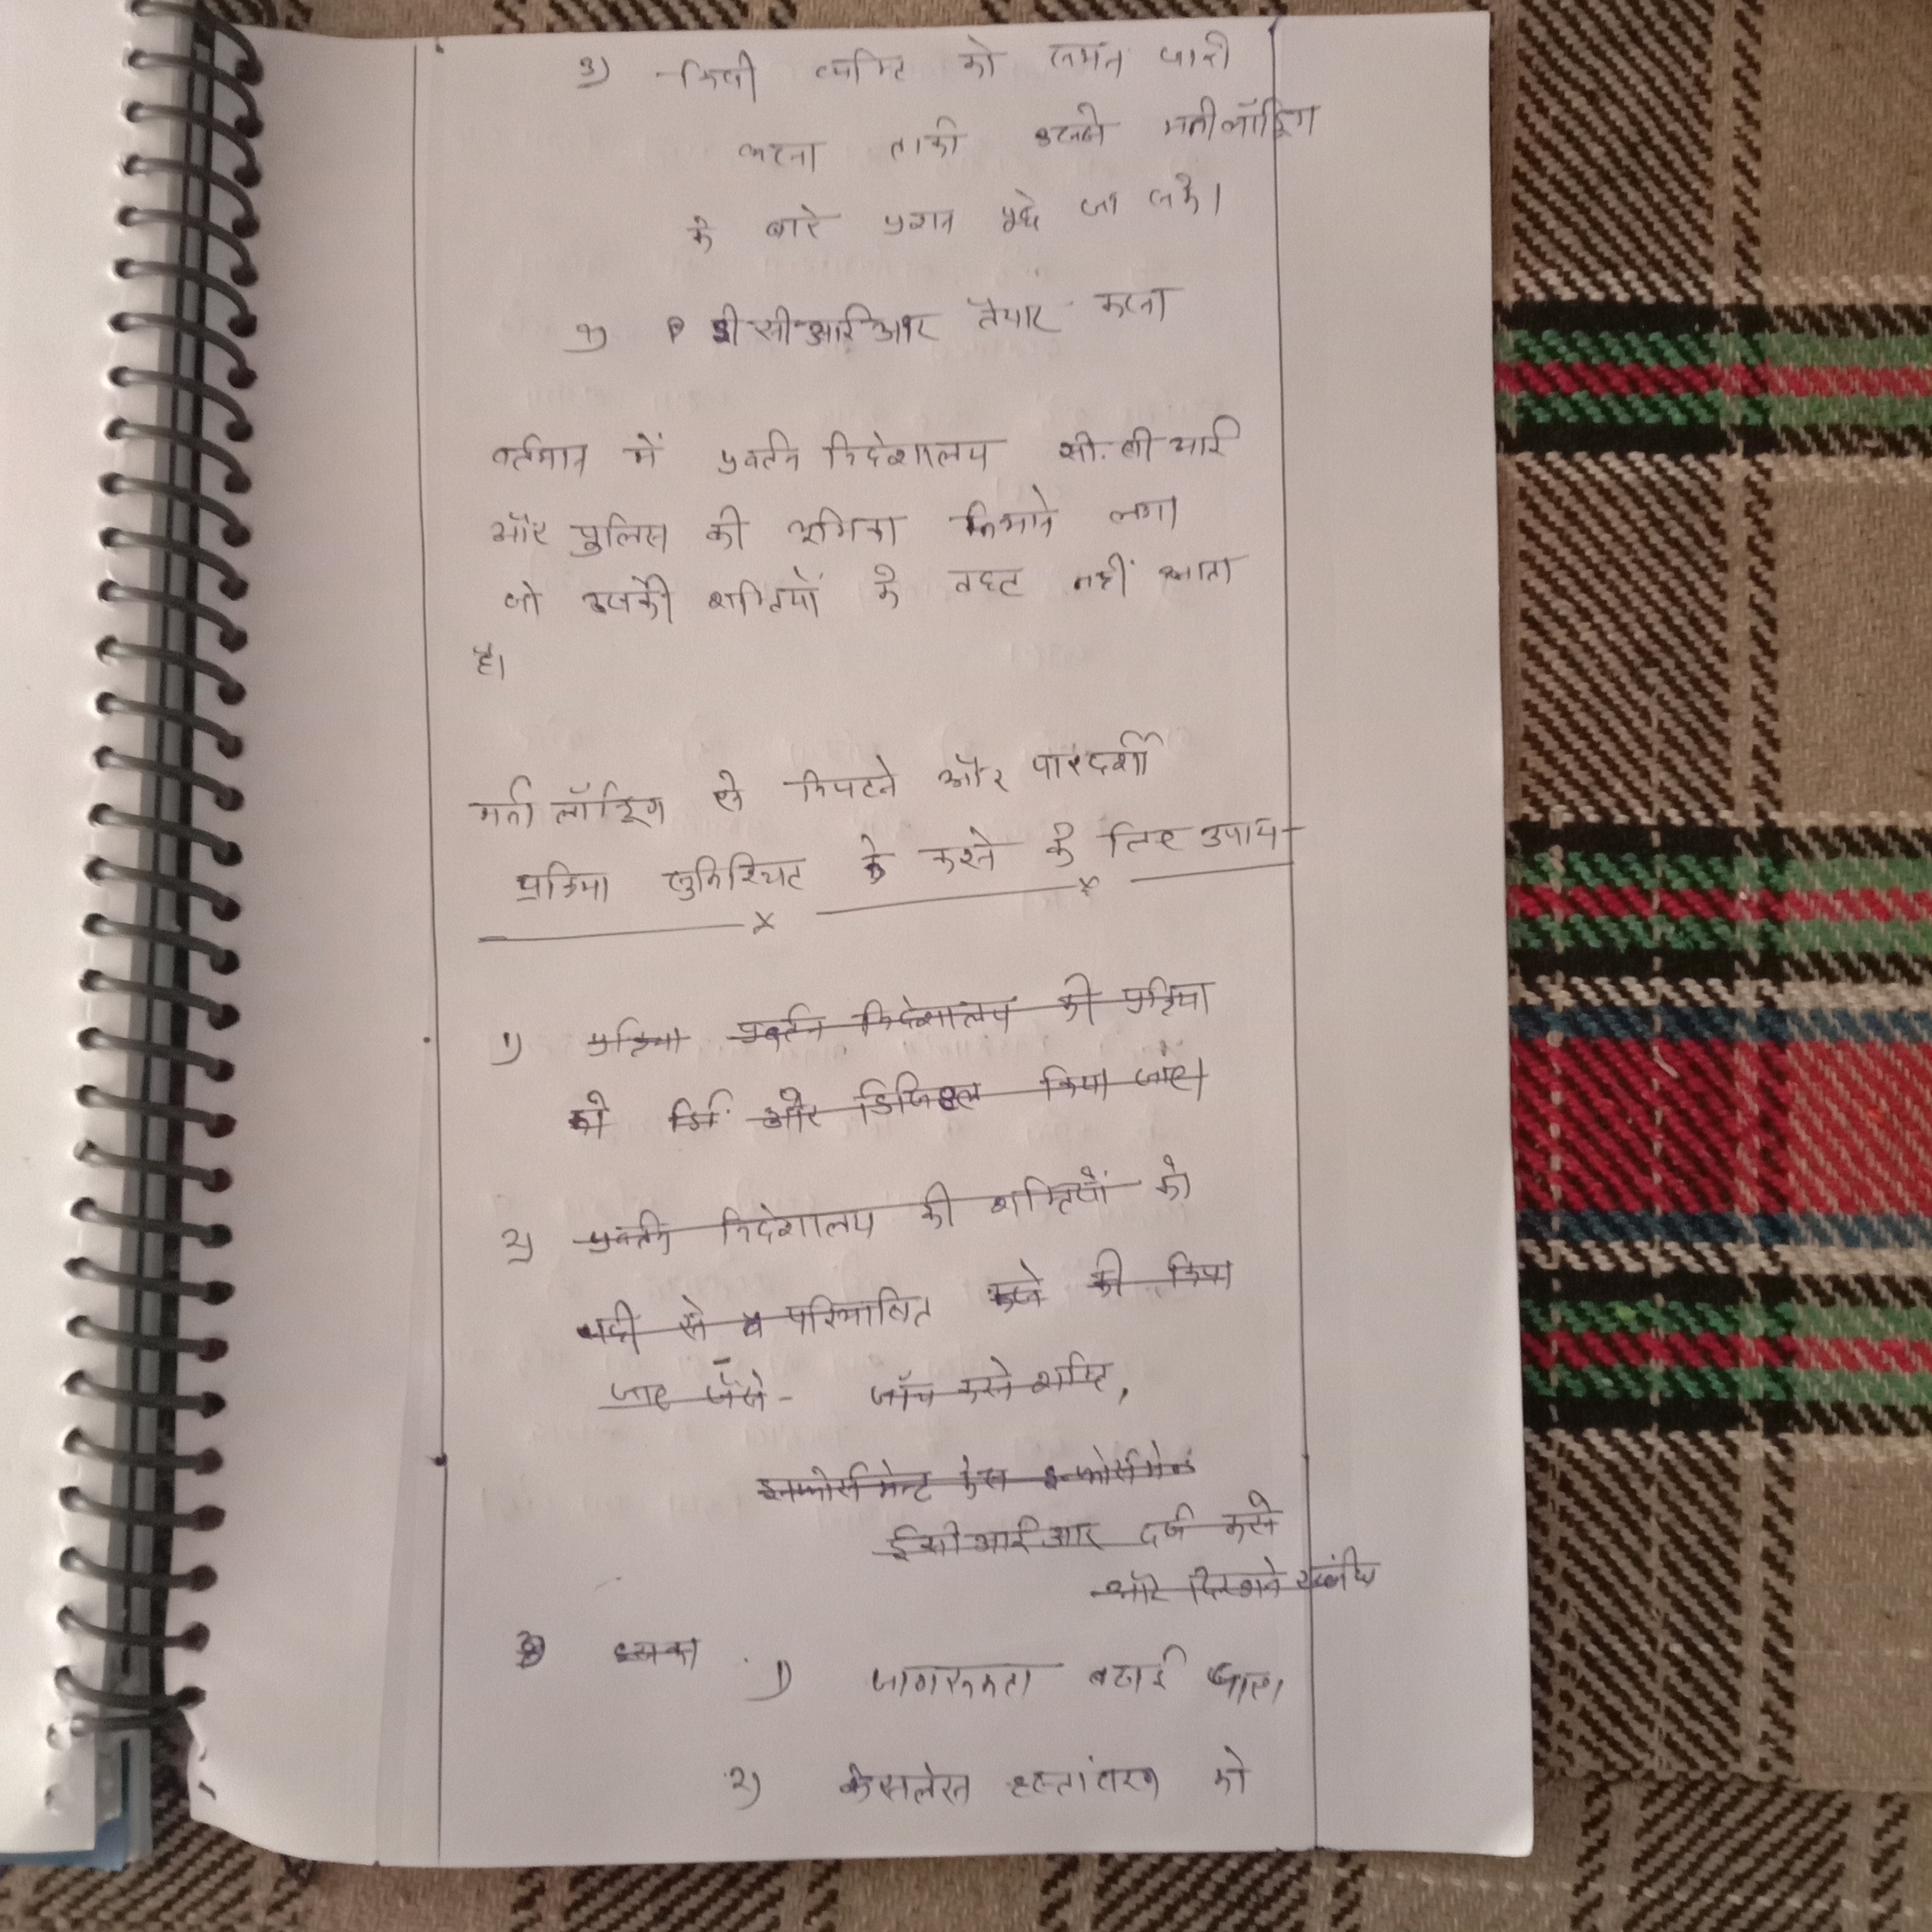 3) किसी व्यक्ति को समन जारी
करना ताकी उससे मनीलॉड्रिंग
के बारे प्रशन पूछे जा सके।
4) ईसीआईआर तैयार करना
वर्तमान में प्रवर्तन निदेशालय सी.बी आई
और पुलिस की भूमिका निभाने लगा
जो उसकी शक्तियों के तहत नहीं आता
है।
मनी लॉड्रिंग से निपटने और पारदर्शी
प्रक्रिया सुनिश्चित के करने के लिए उपाय-
1) प्रक्रिया प्रवर्तन निदेशालय की प्रक्रिया
को और डिजिटल किया जाए।
2) प्रवर्तन निदेशालय की शक्तियों को
सही से परिभाषित करने की किया
जाए जैसे- जाँच करने शक्ति,
इनफोर्समेन्ट केस इन्फोर्समेन्ट
ईसीआईआर दर्ज करने
और दिखाने संबंधि
3) इसका 1) जागरूकता बढाई जाए।
2) केसलेस हस्तांतरण को